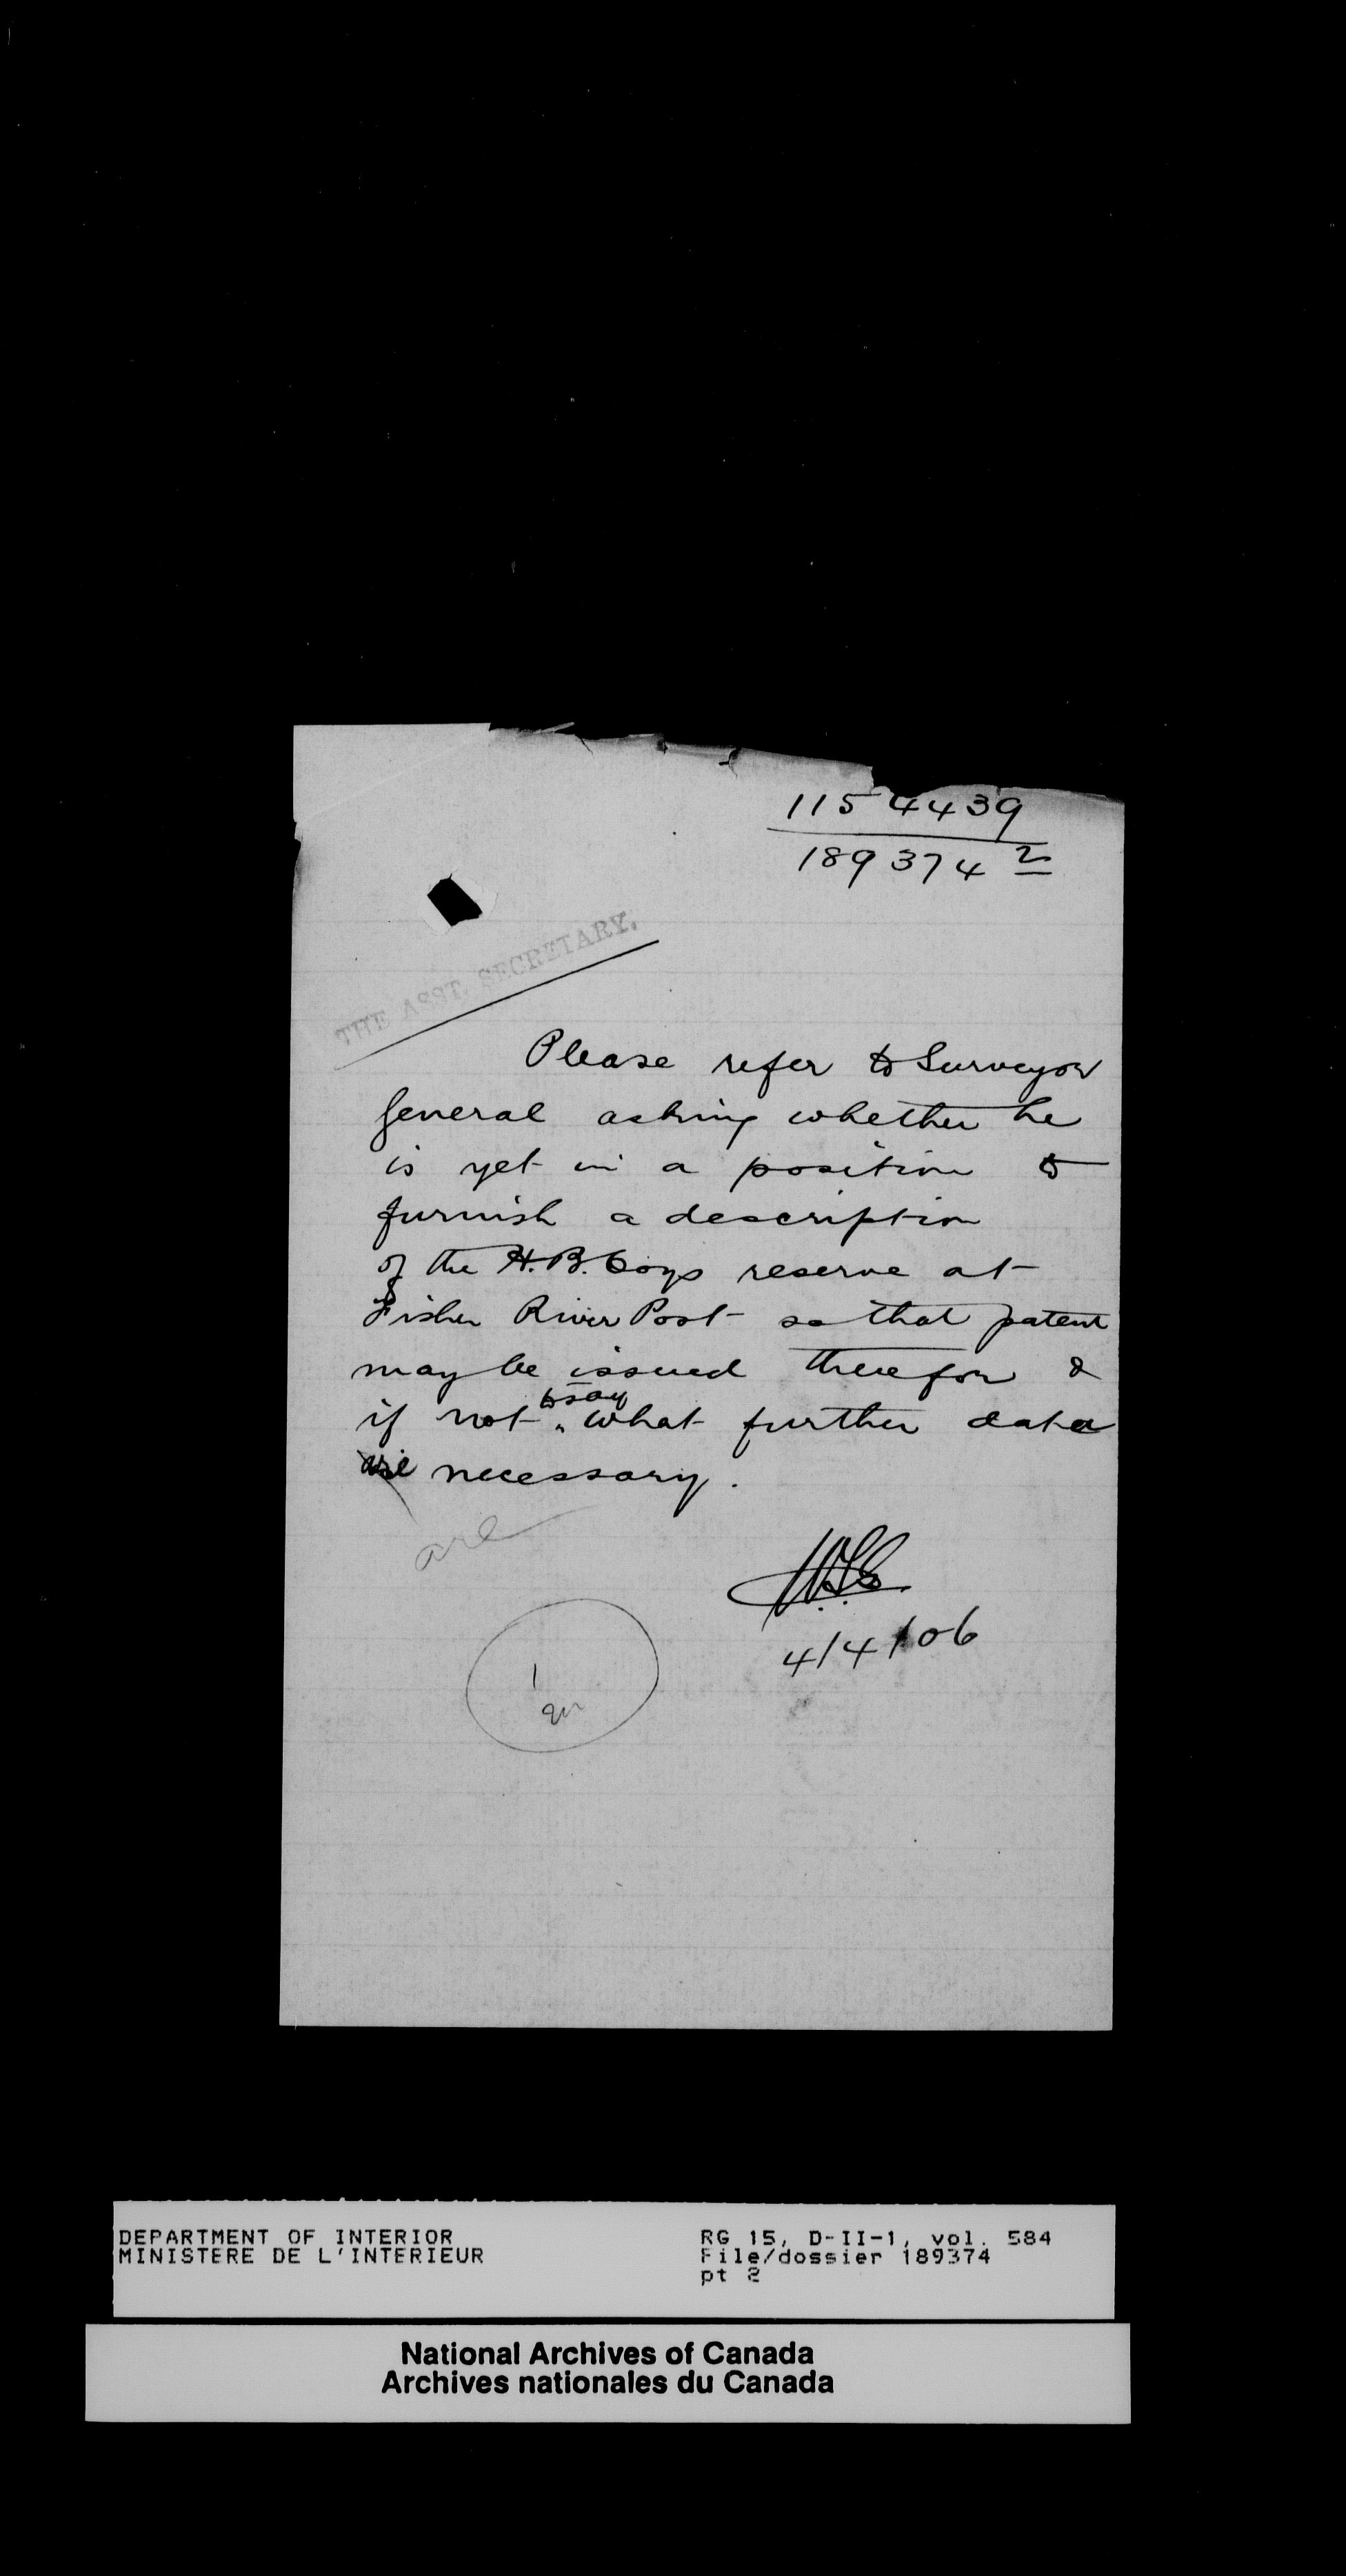 1154439
189374 2
THE ASST. SECRETARY.
Please refer to Surveyor
General asking whether he
is yet in a position to
furnish a description
of the H.B. Coys reserve at
Fisher River Post so that patent
may be issued therefor &
to say
if not ‸ what further data
are necessary.
are
4/4/06
1
DEPARTMENT OF INTERIOR
MINISTERE DE L'INTERIEUR
RG 15, D-II-1, vol. 584
File/dossier 189374
pt 2
National Archives of Canada
Archives nationales du Canada